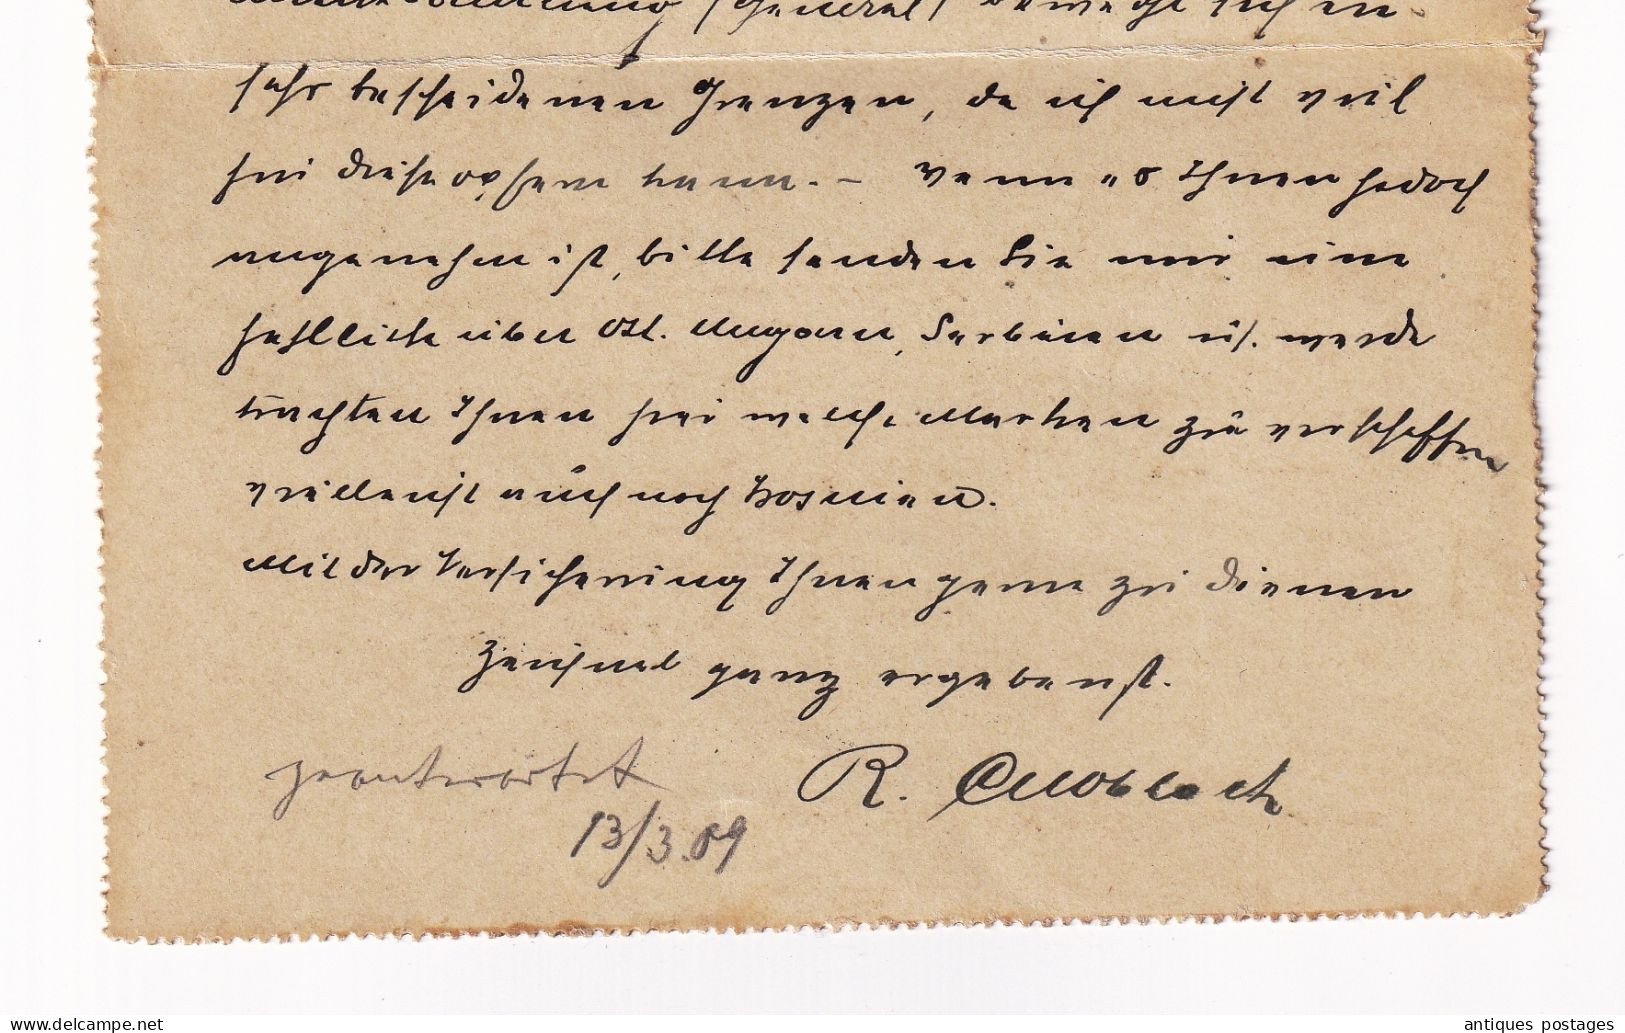 (General) bewegt sich in
sehr bescheidenen Grenzen, da ich nicht viel
für diese opfern kann. – Wenn es Ihnen jedoch
angenehm ist, bitte senden Sie mir eine
über Öst. Ungarn, Serbien u. werde
trachten Ihnen welche Marken zu verschaffen
vielleicht auch noch Bosnien.
Mit der Versicherung Ihnen gerne zu dienen
zeichnet ganz ergebenst.
geantwortet R.
13/3.89
antiques postages
www.delcampe.net